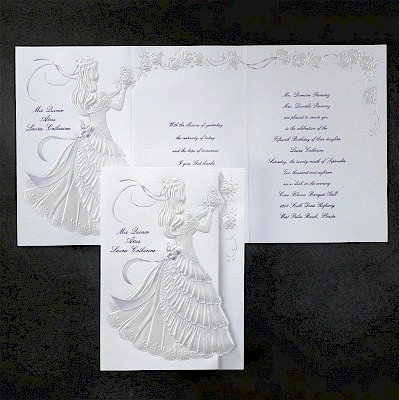 Mis Quince
Años
Laura Catherine
With the illusion of yesterday
the certainty of today
and the hope of tomorrow
I give God thanks
Mr. Damian Ramirez
Mrs. Daniela Ramirez
are pleased to invite you
to the celebration of the
Fifteenth Birthday of their daughter
Laura Catherine
Saturday, the twenty-ninth of September
Two thousand and eighteen
six o'clock in the evening
Banquet Hall
South Dixie Highway
West Palm Beach, Florida
Mis Quince
Años
Laura Catherine